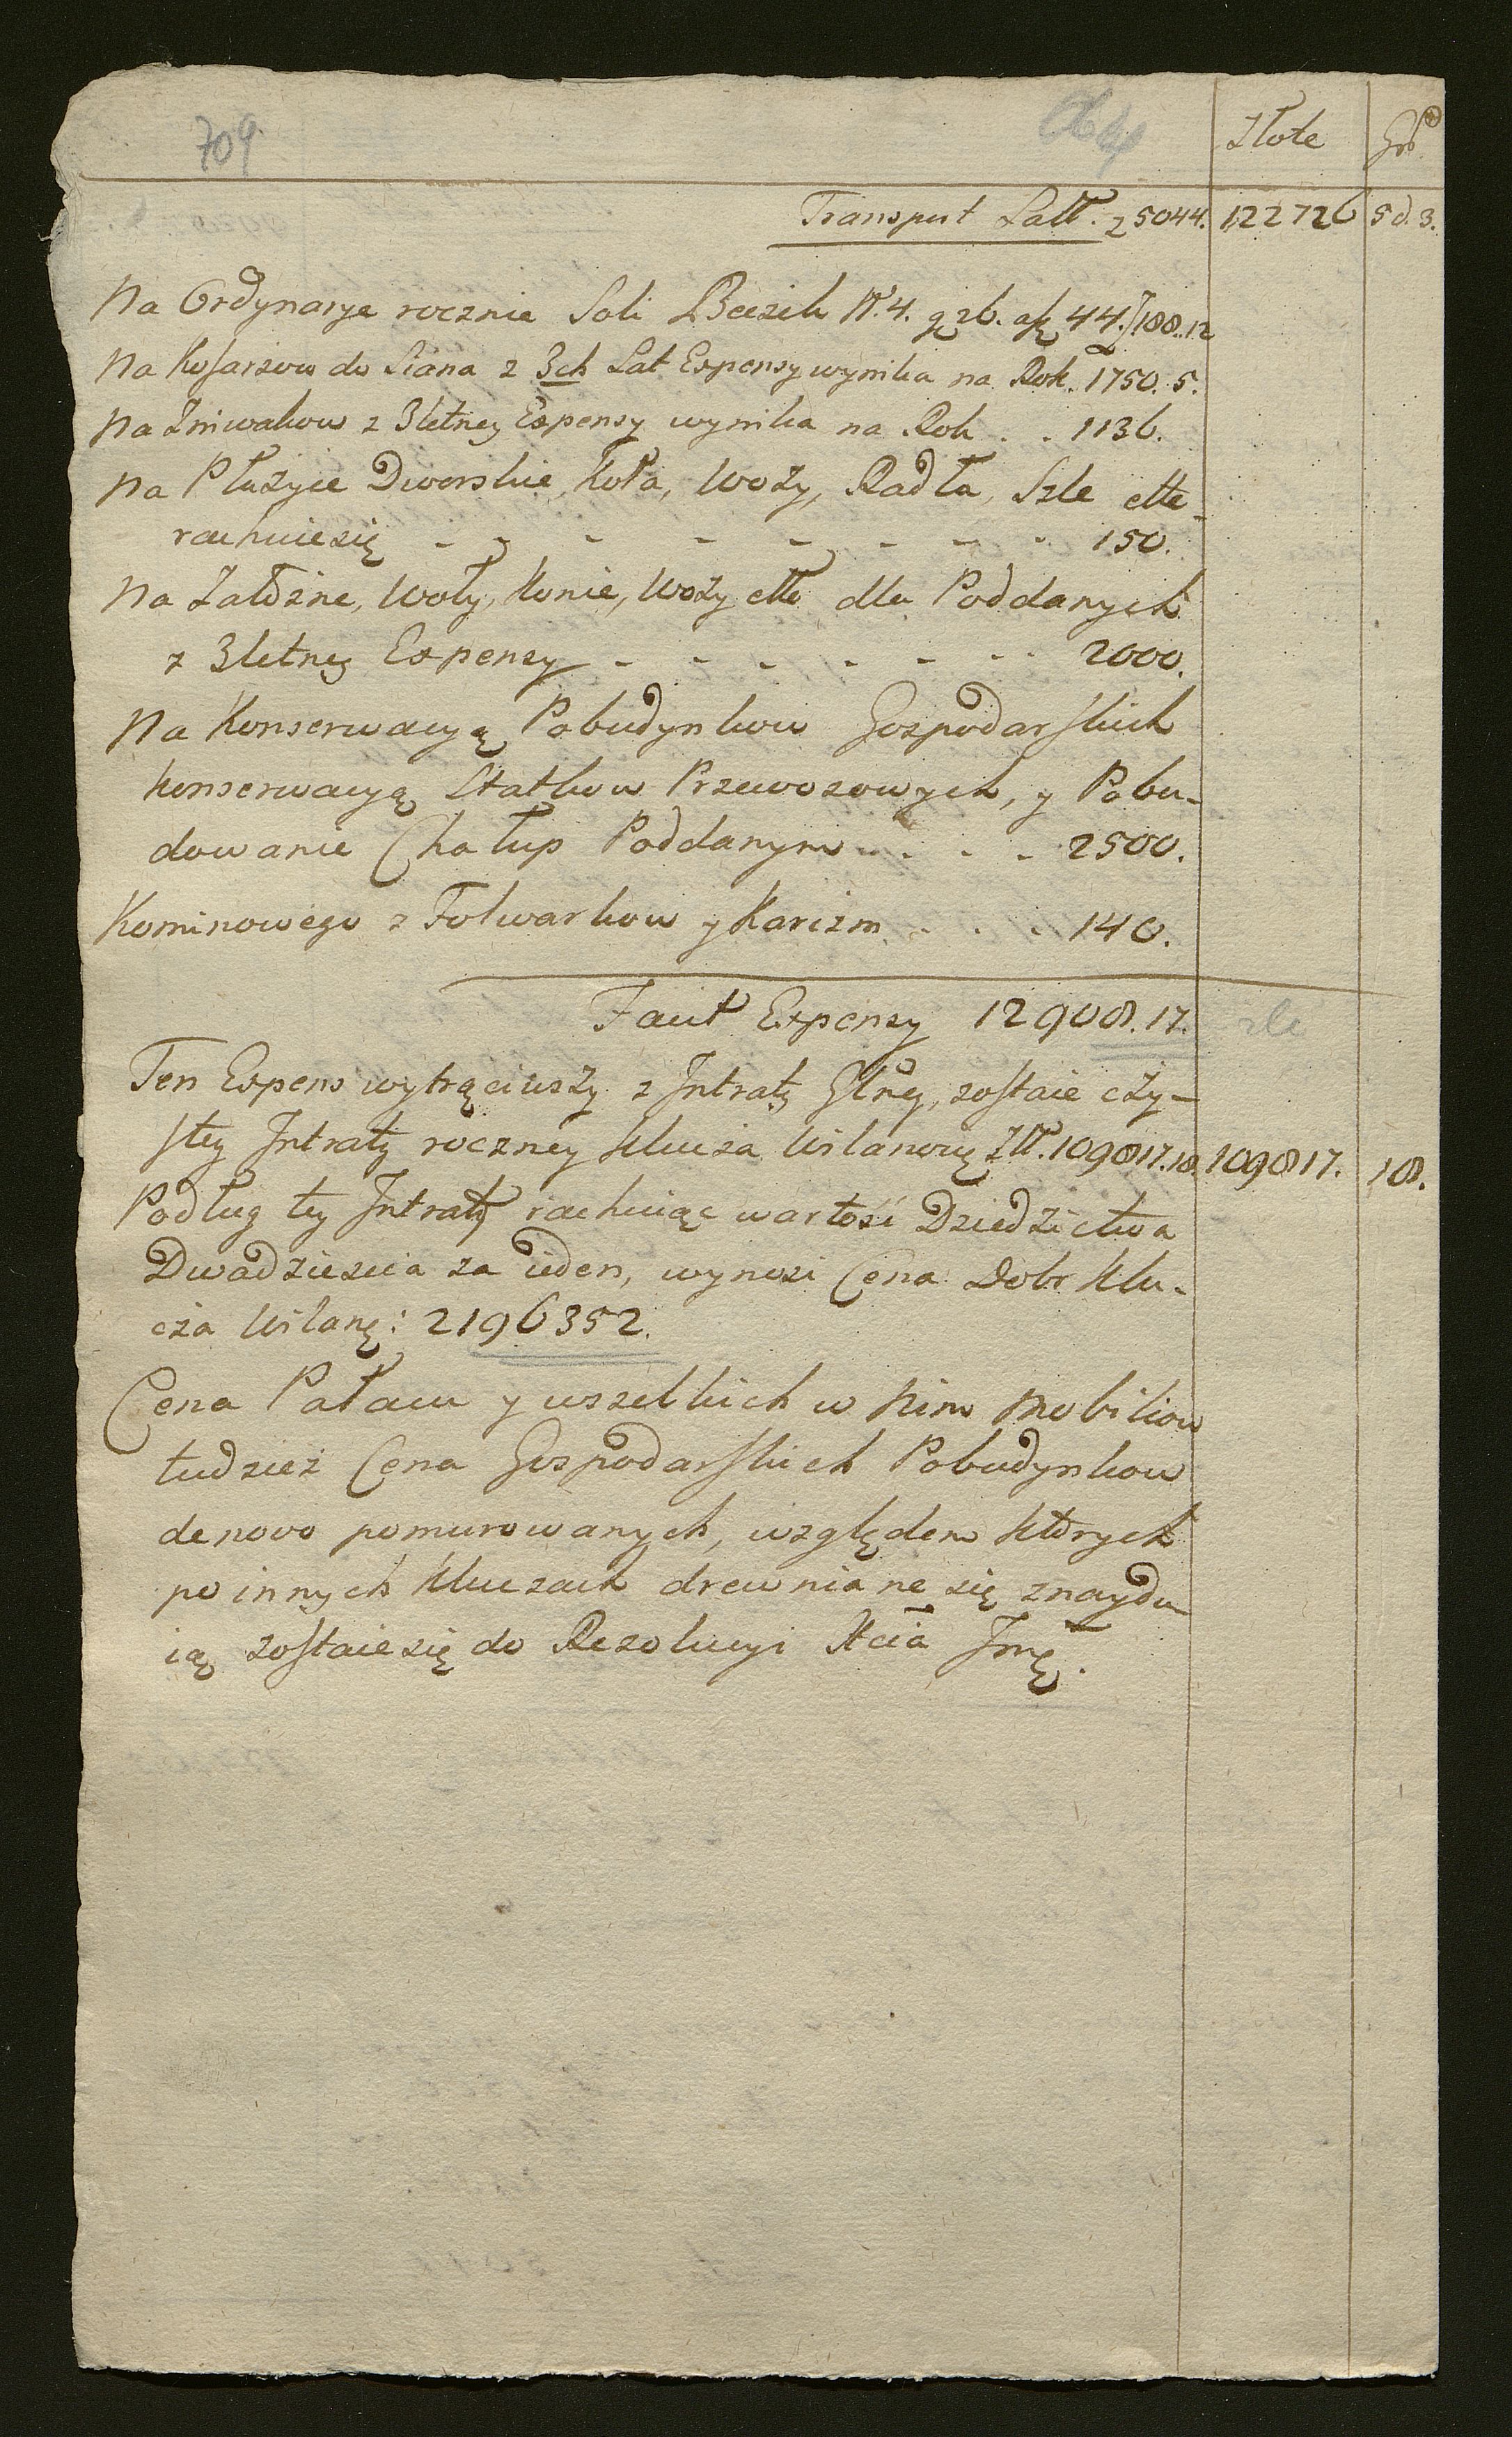 709
Złote Gr
Transport Latt. 5044. 122726 5 d. 3.
Na Ordynarye rocznie Soli Beczek N. 4. 44. 188..12
Na Kosarzow do Siana z 3ch Lat Expensy wynika na Rok. 1750. 5.
Na Zniwakow z 3letney Expensy wynika na Rok . . 1136.
Na Płużyce Dworskie, Koła, Wozy, Radła, Szle ette
rachuie się - - - - - - - - 150.
Na Załozne, Woły, Konie, Wozy ette dla Poddanych
z 3letney Expensy - - - - - - - 2000.
Na Konserwacyą Pobudynkow Gospodarskich
konserwacyą Statkow Przewozowych, y Pobu-
dowanie Chałup Poddanym - . - - 2500.
Kominowego z Folwarkow y Karczm . . . 140.
Facit Expensy 12908. 17. złe
Ten Expens wytrąciwszy z Intraty Glney, zostaie czy-
stey Intraty roczney klucza Wilanowę Ztt. 109817.18. 109817. 18.
Podług tey Intraty rachuiąc wartość Dziedzictwa
Dwadziescia za ieden, wynosi Cena Dobr Klu-
cza Wilanę: 2196352.
Cena Pałacu y wszelkich w Nim Mobiliow
tudziez Cena Gospodarskich Pobudynkow
de novo pomurowanych, względem ktorych
po innych kluczach drewniane się znaydu-
ią zostaie się do Rezolucyi Xcia Jmę.